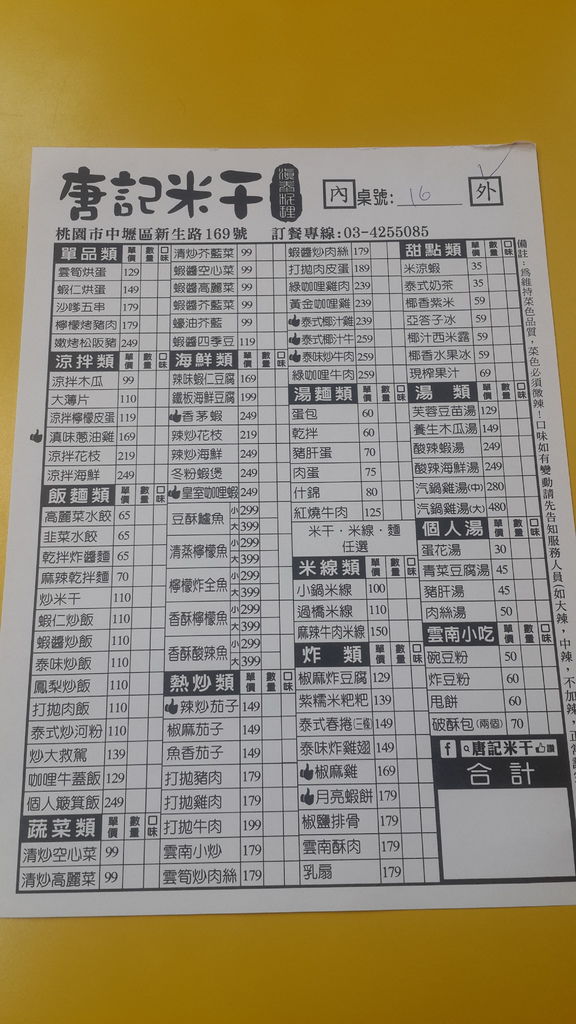 唐記米干 滇泰料理 內 桌號: 16 外
桃園市中壢區新生路169號 訂餐專線:03-4255085
單品類 單價 數量 口味
雲筍烘蛋 129
蝦仁烘蛋 149
沙嗲五串 179
檸檬烤豬肉 179
嫩烤松阪豬 249
涼拌類 單價 數量 口味
涼拌木瓜 99
大薄片 110
涼拌檸檬皮蛋 119
滇味蔥油雞 169
涼拌花枝 219
涼拌海鮮 249
飯麵類 單價 數量 口味
高麗菜水餃 65
韭菜水餃 65
乾拌炸醬麵 65
麻辣乾拌麵 70
炒米干 110
蝦仁炒飯 110
蝦醬炒飯 110
泰味炒飯 110
鳳梨炒飯 110
打拋肉飯 110
泰式炒河粉 110
炒大救駕 139
咖哩牛蓋飯 129
個人簸箕飯 249
蔬菜類 單價 數量 口味
清炒空心菜 99
清炒高麗菜 99
清炒芥藍菜 99
蝦醬空心菜 99
蝦醬高麗菜 99
蝦醬芥藍菜 99
蠔油芥藍 99
蝦醬四季豆 119
海鮮類 單價 數量 口味
辣味蝦仁豆腐 169
鐵板海鮮豆腐 199
香茅蝦 249
辣炒花枝 219
辣炒海鮮 249
冬粉蝦煲 249
皇室咖哩蝦 249
豆酥鱸魚 小299 大399
清蒸檸檬魚 小299 大399
檸檬炸全魚 小299 大399
香酥檸檬魚 小299 大399
香酥酸辣魚 小299 大399
熱炒類 單價 數量 口味
辣炒茄子 149
椒麻茄子 149
魚香茄子 149
打拋豬肉 179
打拋雞肉 179
打拋牛肉 199
雲南小炒 179
雲筍炒肉絲 179
蝦醬炒肉絲 179
打拋肉皮蛋 189
綠咖哩雞肉 239
黃金咖哩雞 239
泰式椰汁雞 239
泰式椰汁牛 259
泰味炒牛肉 259
綠咖哩牛肉 259
湯麵類 單價 數量 口味
蛋包 60
乾拌 60
豬肝蛋 70
肉蛋 75
什錦 80
紅燒牛肉 125
米干・米線・麵
任選
米線類 單價 數量 口味
小鍋米線 100
過橋米線 110
麻辣牛肉米線 150
炸類 單價 數量 口味
椒麻炸豆腐 129
紫糯米粑粑 139
泰式春捲(三雀) 149
泰味炸雞翅 149
椒麻雞 169
月亮蝦餅 179
椒鹽排骨 179
雲南酥肉 179
乳扇 179
甜點類 單價 數量 口味
米涼蝦 35
泰式奶茶 35
椰香紫米 59
亞答子冰 59
椰汁西米露 59
椰香水果冰 59
現榨果汁 69
湯類 單價 數量 口味
芙蓉豆苗湯 129
養生木瓜湯 149
酸辣蝦湯 249
酸辣海鮮湯 249
汽鍋雞湯(中) 280
汽鍋雞湯(大) 480
個人湯 單價 數量 口味
蛋花湯 30
青菜豆腐湯 45
豬肝湯 45
肉絲湯 50
雲南小吃 單價 數量 口味
碗豆粉 50
炸豆粉 60
甩餅 60
破酥包(兩個) 70
f 唐記米干 讚
合計
備註:為維持菜色品質,菜色必須微辣!口味如有變動請先告知服務人員(如大辣,中辣,不加辣,